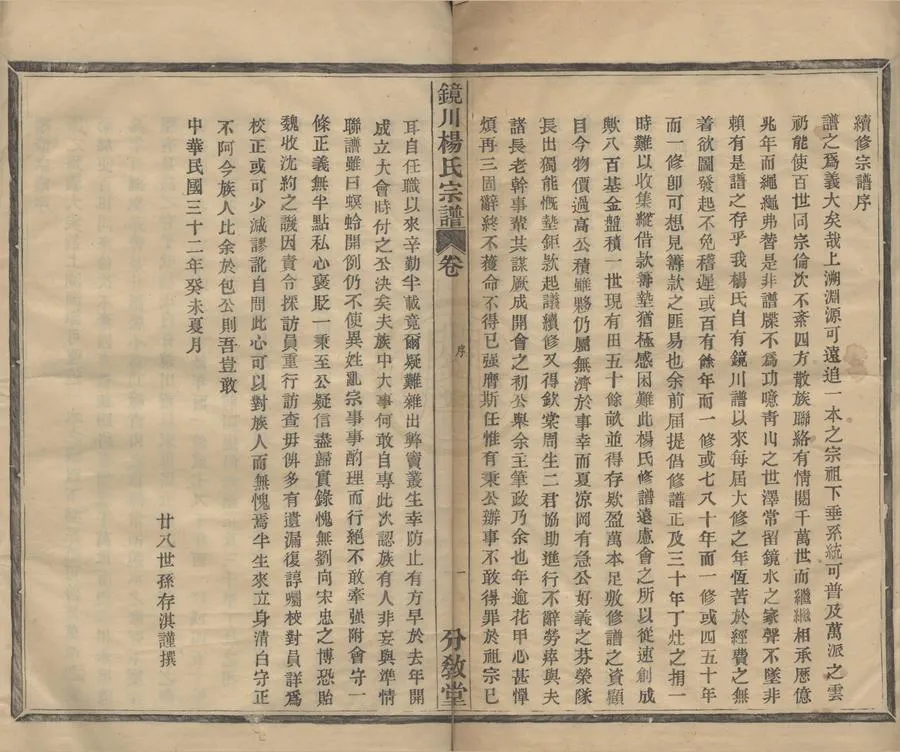 續修宗譜序
譜之爲義大矣哉上溯淵源可遠追一本之宗祖下垂系統可普及萬派之雲
礽能使百世同宗倫次不紊四方散族聯絡有情閱千萬世而繼繼相承歷億
兆年而繩繩弗替是非譜牒不爲功噫靑山之世澤常留鏡水之家聲不墜非
賴有是譜之存乎我楊氏自有鏡川譜以來每屆大修之年恆苦於經費之無
着欲圖發起不免稽遲或百有餘年而一修或七八十年而一修或四五十年
而一修卽可想見籌款之匪易也余前屆提倡修譜正及三十年丁灶之捐一
時難以收集縱借款籌墊猶極感困難此楊氏修譜遠慮會之所以從速創成
歟八百基金盤積一世現有田五十餘畝並得存欵盈萬本足敷修譜之資顧
目今物價過高公積雖夥仍屬無濟於事幸而夏凉岡有急公好義之芬榮隊
長出獨能慨墊鉅欵起議續修又得欽棠周生二君協助進行不辭勞瘁與夫
諸長老幹事輩共謀厥成開會之初公舉余主筆政乃余也年逾花甲心甚憚
煩再三固辭終不獲命不得已强膺斯任惟有秉公辦事不敢得罪於祖宗已
鏡川楊氏宗譜
卷
序
一
分敎堂
耳自任職以來辛勤半載竟爾疑難雜出弊竇叢生幸防止有方早於去年開
成立大會時付之公決矣夫族中大事何敢自專此次認族有人非妄與準情
聯譜雖曰螟蛉開例仍不使異姓亂宗事事酌理而行絕不敢牽强附會守一
條正義無半點私心褒貶一秉至公疑信盡歸實錄愧無劉向宋忠之博恐貽
魏收沈約之譏因責令探訪員重行訪查毋俾多有遺漏復諄囑校對員詳爲
校正或可少滅謬訛自問此心可以對族人而無愧焉半生來立身清白守正
不阿今族人比余於包公則吾豈敢
中華民國三十二年癸未夏月
廿八世孫存淇謹撰